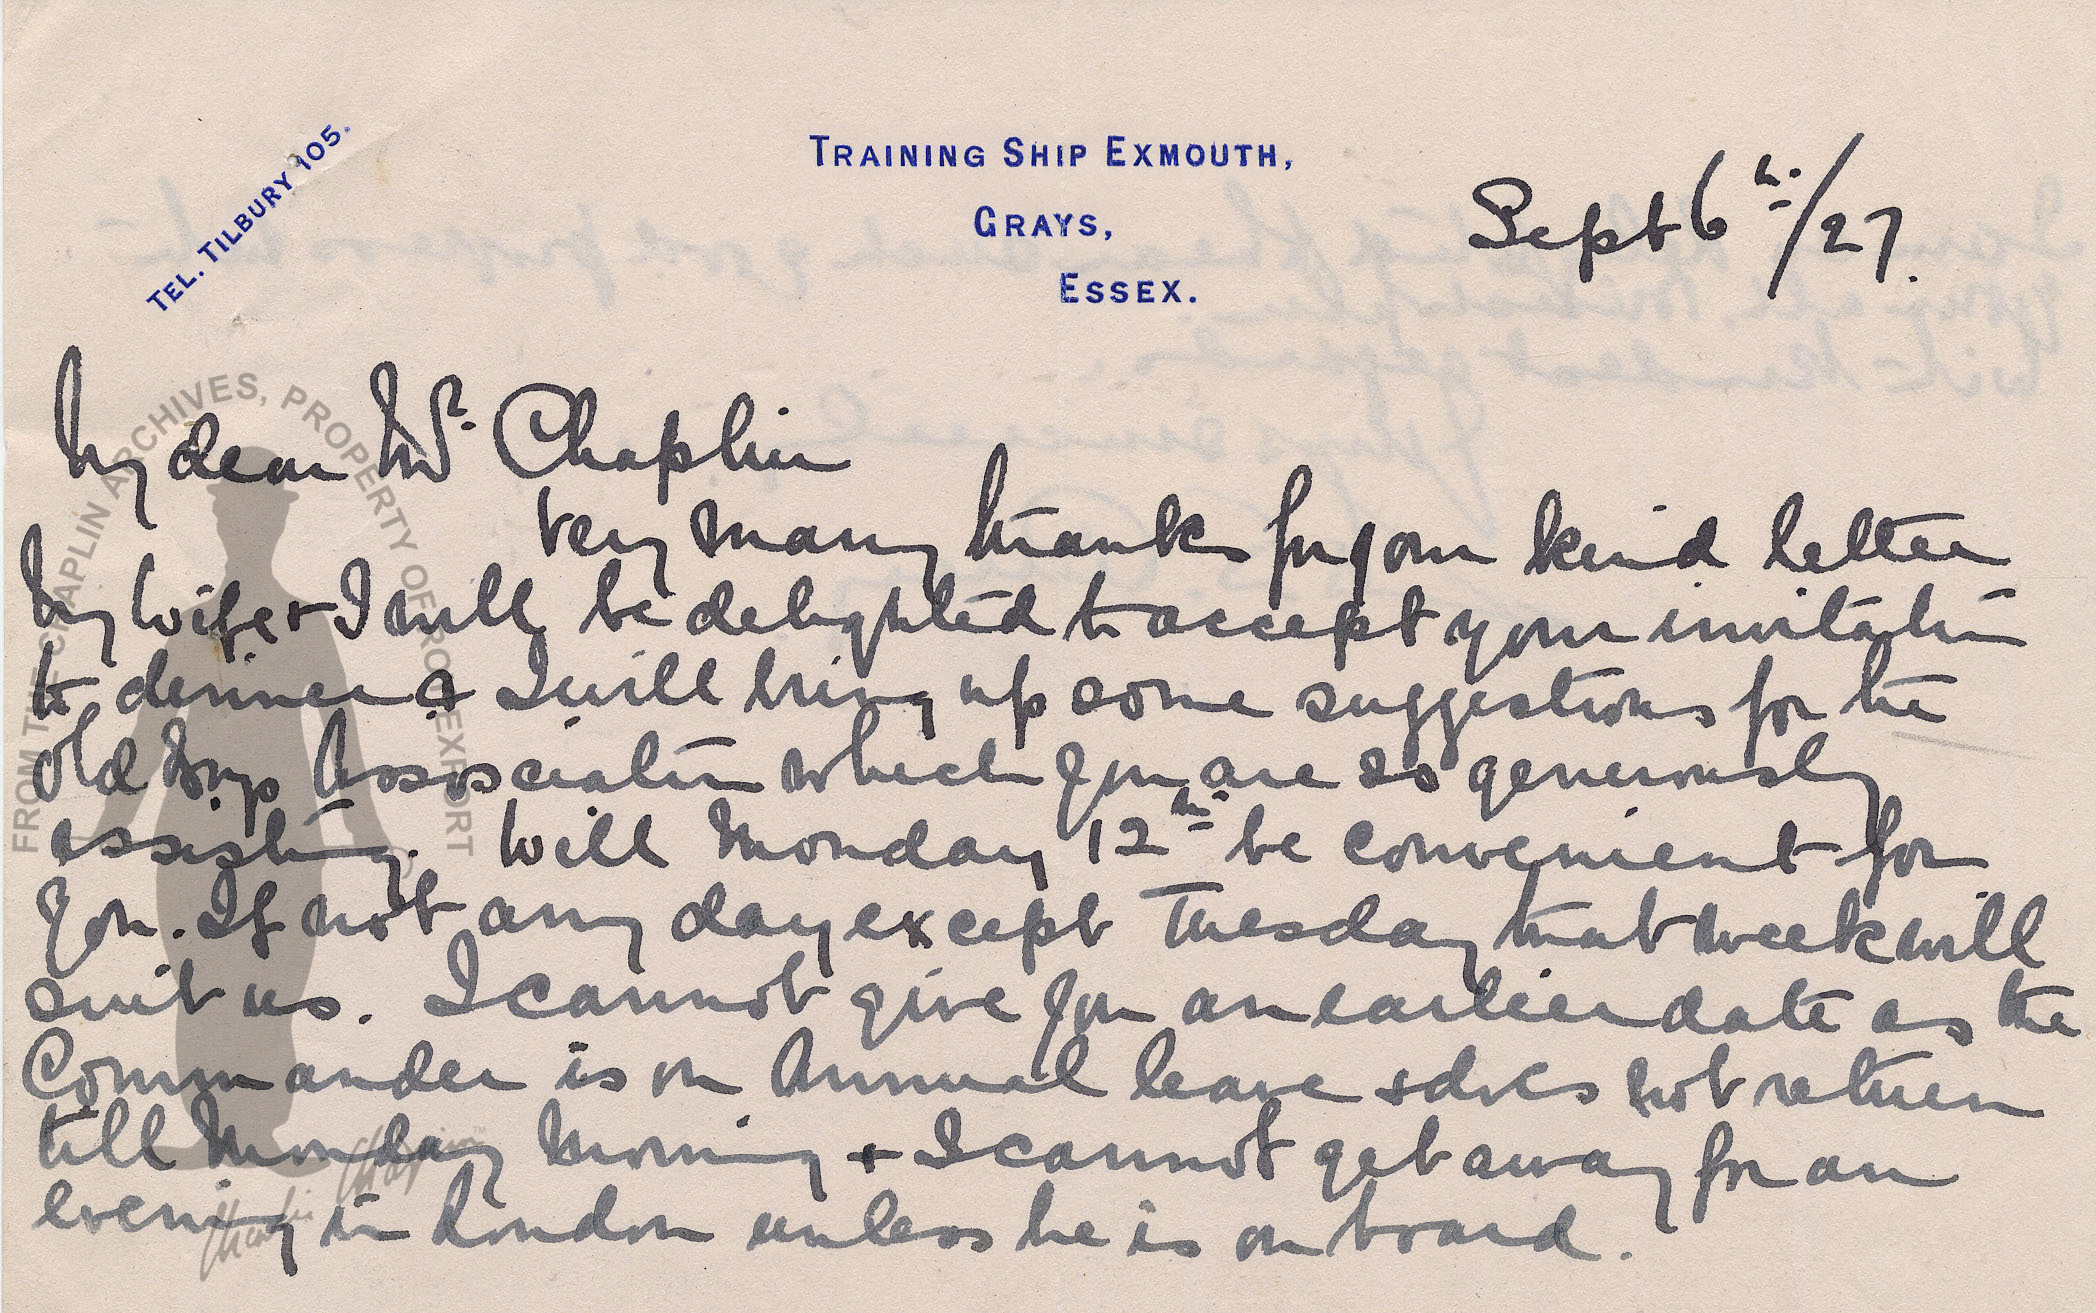 TEL. TILBURY 105.
TRAINING SHIP EXMOUTH,
GRAYS,
ESSEX.
Sept 6th./27.
My dear Mr. Chaplin
Very many thanks for your kind letter
My wife & I will be delighted to accept your invitation
to dinner & I will bring up some suggestions for the
Old Boys Association which you are so generously
assisting. Will Monday 12th be convenient for
you. If not any day except Tuesday that week will
suit us. I cannot give you an earlier date as the
Commander is on Annual leave & does not return
till Monday morning & I cannot get away for an
evening in London unless he is on board.
FROM THE CHAPLIN ARCHIVES, PROPERTY OF ROY EXPORT
Charlie Chaplin™